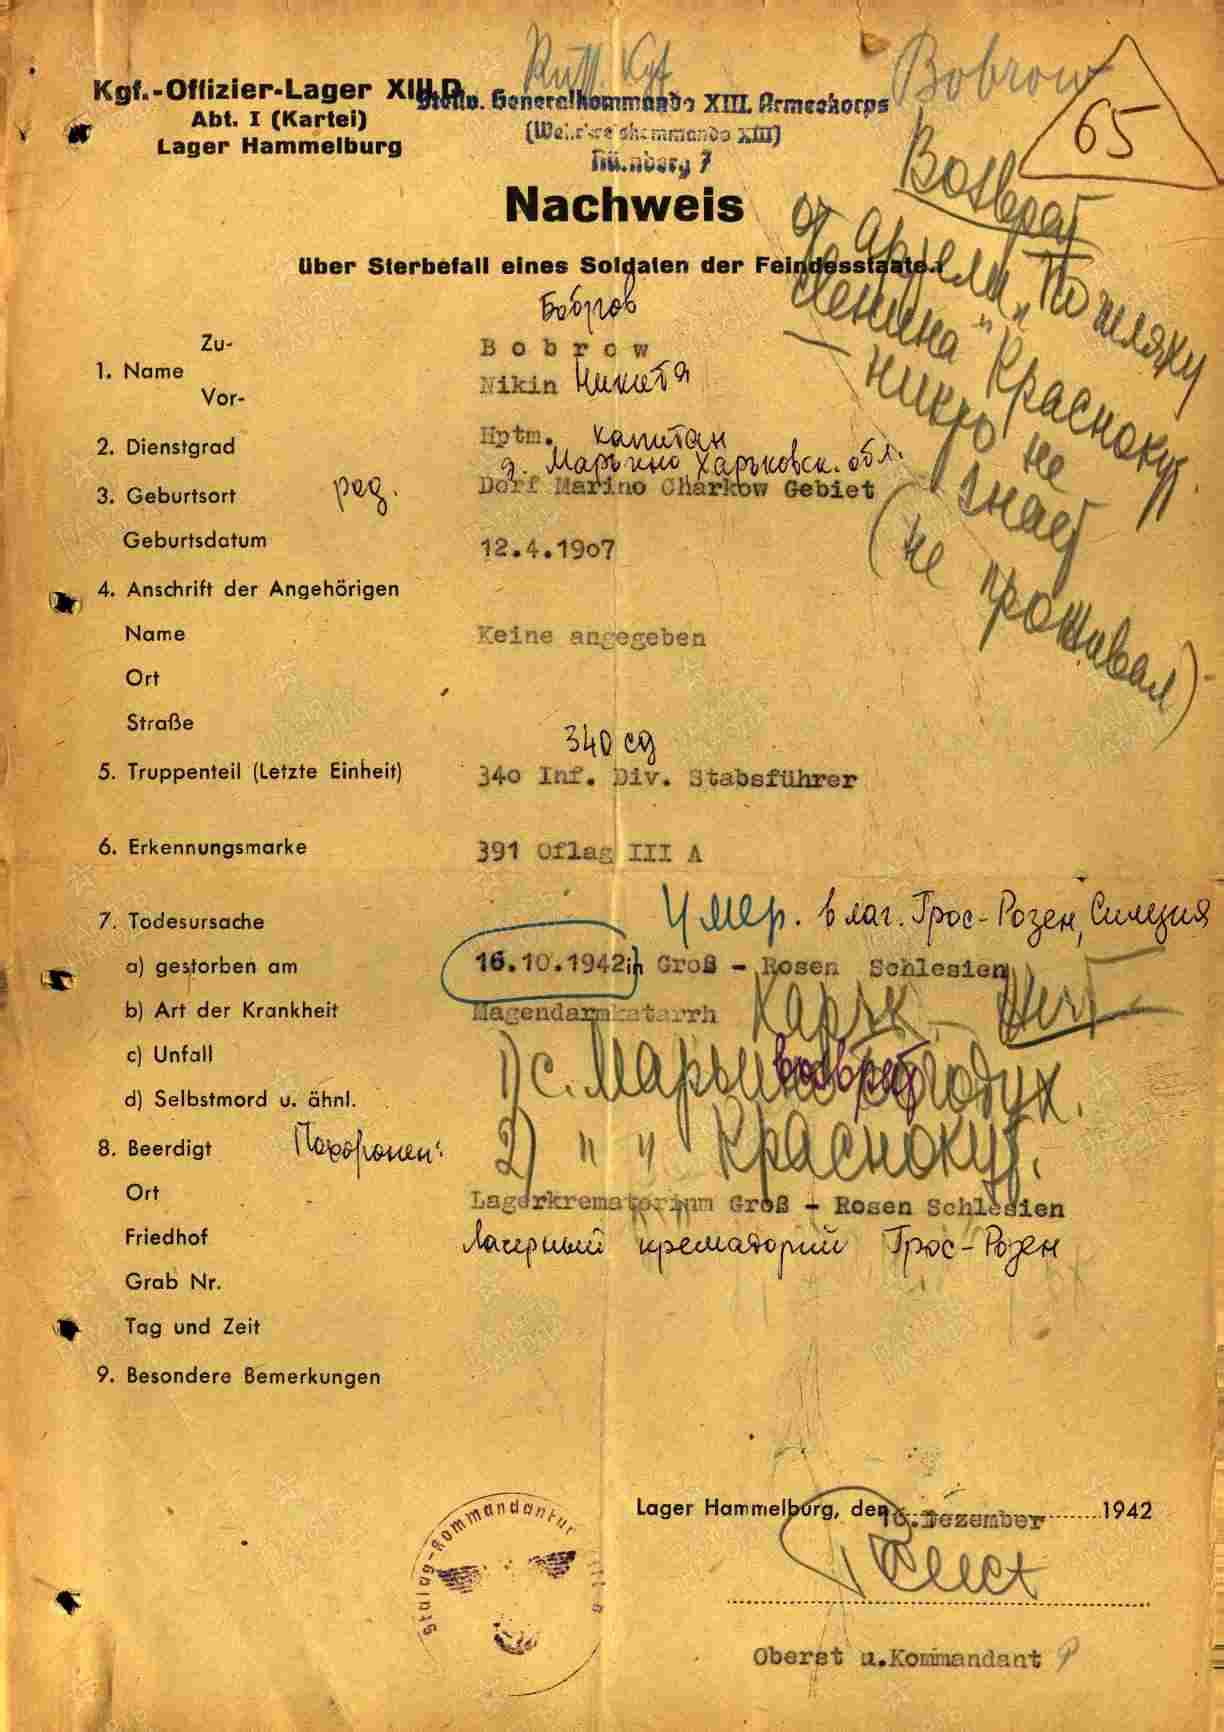 Russ. Kgf.
Bobrow
65
Kgf.-Offizier-Lager XIII D
Abt. I (Kartei)
Lager Hammelburg
Stellv. Generalkommando XIII. Armeekorps
(Wehrkreiskommando XIII)
Nürnberg 7
Возврат
от артели "По шляху
Ленина" Краснокут.
— никто не
знает
(не проживал)
Nachweis
über Sterbefall eines Soldaten der Feindesstaaten
Бобров
Zu- Bobrow
1. Name
Vor- Nikin Никита
2. Dienstgrad Hptm. капитан
д. Марьино Харьковск. обл.
3. Geburtsort род. Dorf Marino Charkow Gebiet
Geburtsdatum 12.4.1907
4. Anschrift der Angehörigen
Name Keine angegeben
Ort
Straße
340 сд
5. Truppenteil (Letzte Einheit) 340 Inf. Div. Stabsführer
6. Erkennungsmarke 391 Oflag III A
7. Todesursache Умер. в лаг. Грос-Розен, Силезия
a) gestorben am 16.10.1942 in Groß - Rosen Schlesien
b) Art der Krankheit Magendarmkatarrh Харьк. нет
c) Unfall
1) с. Марьино Богодух.
возврат
d) Selbstmord u. ähnl.
2) " " Краснокут.
8. Beerdigt Похоронен:
Ort Lagerkrematorium Groß - Rosen Schlesien
Friedhof Лагерный крематорий Грос-Розен
Grab Nr.
Tag und Zeit
9. Besondere Bemerkungen
Lager Hammelburg, den 16. Dezember 1942
Stalag-Kommandantur
Oberst u. Kommandant